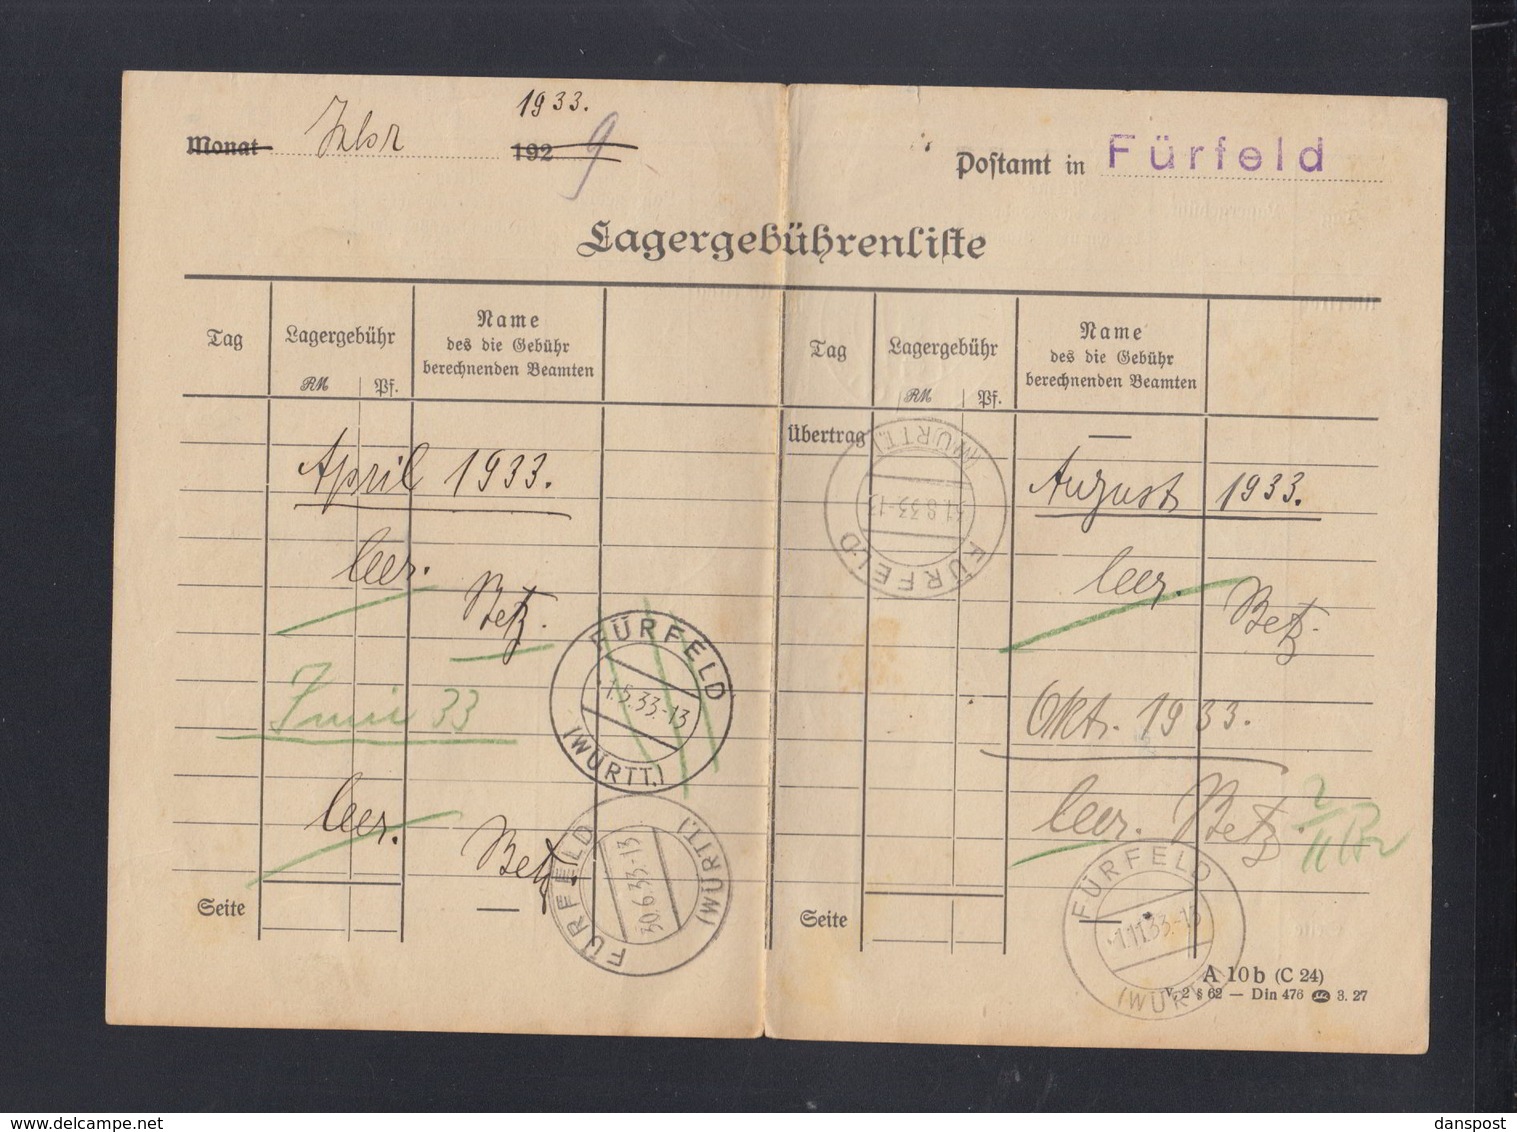 1933.
Monat 1929
Postamt in Fürfeld
Lagergebührenliste
Tag Lagergebühr Name des die Gebühr berechnenden Beamten
RM Pf.
April 1933.
leer.
Betz.
Juni 33
leer.
Betz
Seite —
FÜRFELD
1.5.33.-13
(WÜRTT.)
FÜRFELD
30.6.33.-13
(WÜRTT.)
Tag Lagergebühr Name des die Gebühr berechnenden Beamten
RM Pf.
Übertrag —
August 1933.
leer.
Betz.
Okt. 1933.
leer. Betz.
Seite —
FÜRFELD
31.8.33.-13
(WÜRTT.)
FÜRFELD
1.11.33.-13
(WÜRTT.)
A 10 b (C 24)
V, 2 § 62 — Din 476 3. 27
danspost